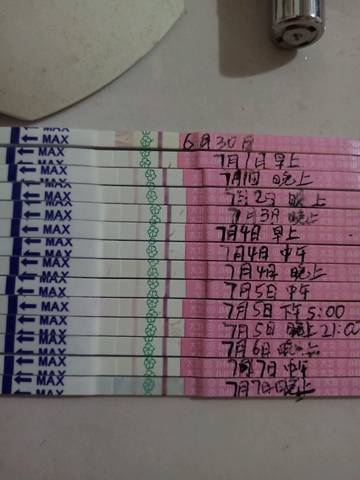 MAX 6月30月
MAX 7月1日早上
MAX 7月1日 晚上
MAX 7月2日 晚上
MAX 7月3月 晚上
MAX 7月4日 早上
MAX 7月4日 中午
MAX 7月4日 晚上
MAX 7月5日 中午
MAX 7月5日 下午5:00
MAX 7月5日 晚上 21:00
MAX 7月6日 晚上
MAX 7月7日 中午
MAX 7月7日晚上